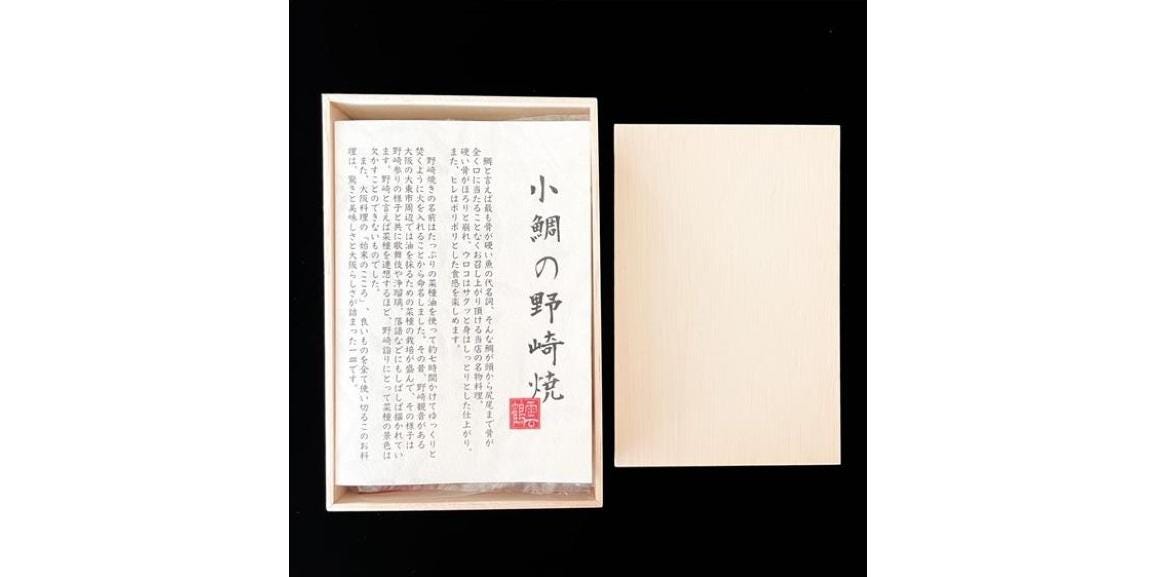 小鯛の野崎焼
雲鶴
鯛と言えば最も骨が硬い魚の代名詞、そんな鯛が頭から尻尾まで骨が
全く口に当たることなくお召し上がり頂ける当店の名物料理。
硬い骨がほろりと崩れ、ウロコはサクッと身はしっとりとした仕上がり。
また、ヒレはポリポリとした食感を楽しめます。
野崎焼きの名前はたっぷりの菜種油を使って約七時間かけてゆっくりと
焚くように火を入れることから命名しました。その昔、野崎観音がある
大阪の大東市周辺では油を採るための菜種の栽培が盛んで、その様子は
野崎参りの様子と共に歌舞伎や浄瑠璃、落語などにもしばしば描かれてい
ます。野崎と言えば菜種を連想するほど、野崎詣りにとって菜種の景色は
欠かすことのできないものでした。
また、大阪料理の「始末のこころ」、良いものを全て使い切るこのお料
理は、驚きと美味しさと大阪らしさが詰まった一皿です。